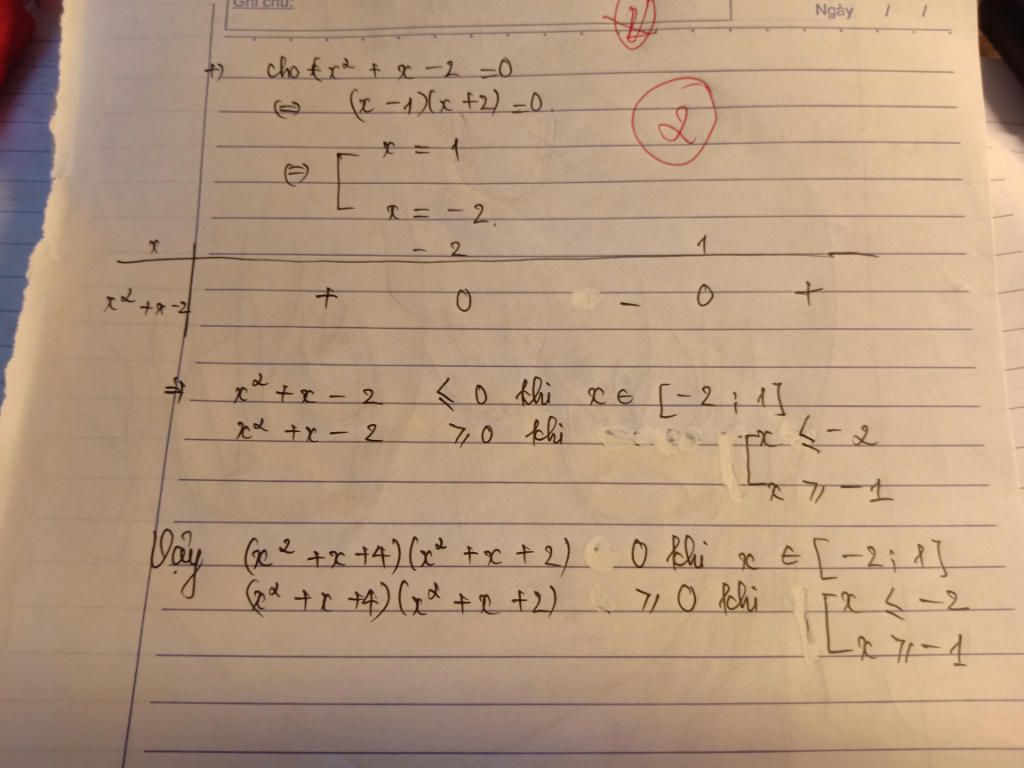 Ghi chú:
Ngày / /
+) cho x² + x - 2 = 0
⇔ (x - 1)(x + 2) = 0.
2
⇔ [ x = 1
x = -2.
x - 2 1
x² + x - 2 + 0 - 0 +
⇒ x² + x - 2 ⩽ 0 khi x ∈ [-2 ; 1]
x² + x - 2 ⩾ 0 khi [ x ⩽ -2
x ⩾ -1
Vậy (x² + x + 4)(x² + x + 2) 0 khi x ∈ [-2 ; 1]
(x² + x + 4)(x² + x + 2) ⩾ 0 khi [ x ⩽ -2
x ⩾ -1